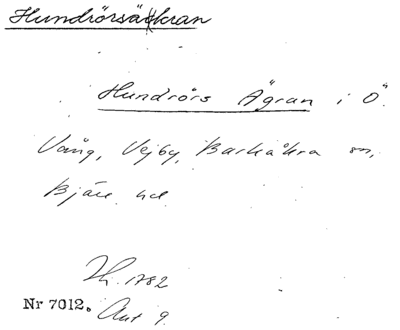 Hundrörsäkran
Hundrörs Ägran i Ö
Vång, Vejby, Barkåkra sn,
Bjäre hd
Zh. 1782
Nr 7012. Akt 9.